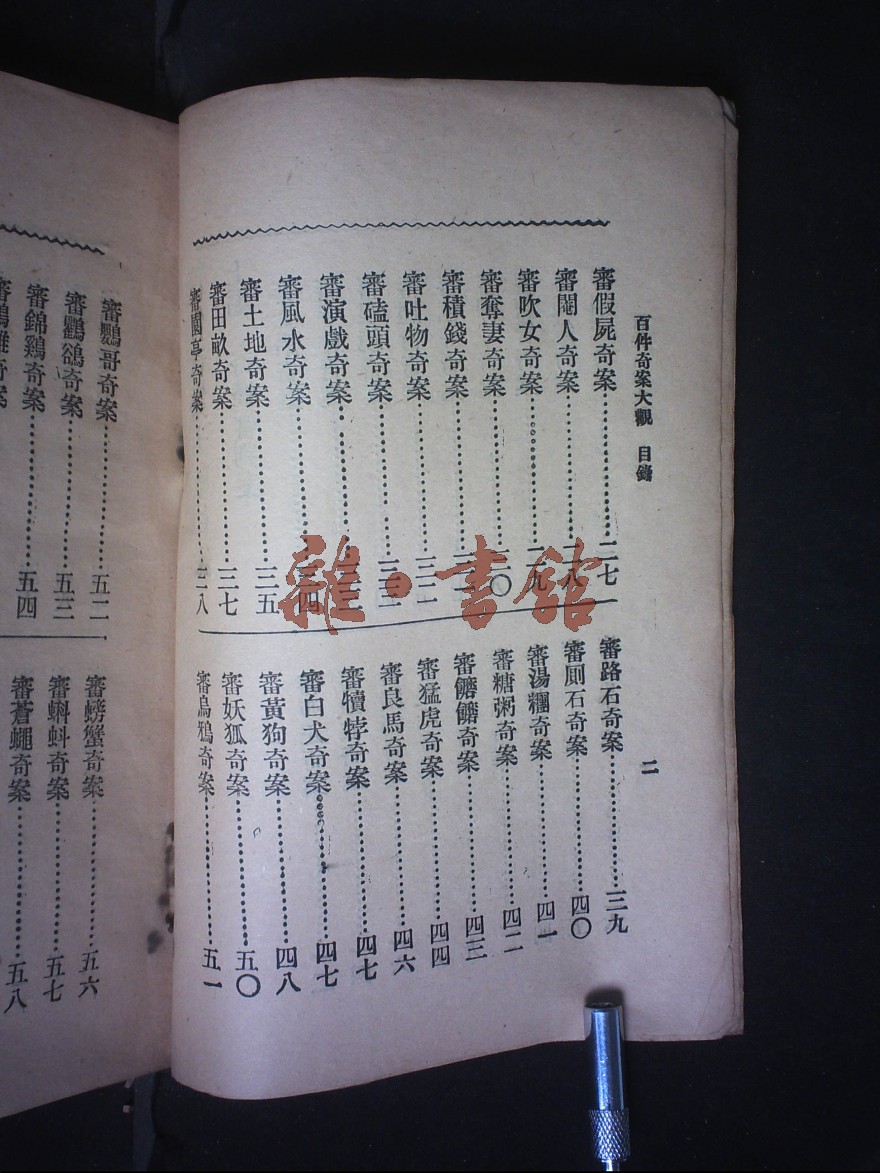 百件奇案大觀　目錄
二
審假屍奇案……二七
審閹人奇案……二八
審吹女奇案……二九
審奪妻奇案……三〇
審積錢奇案……
審吐物奇案……三二
審磕頭奇案……
審演戲奇案……
審風水奇案……三四
審土地奇案……三五
審田畝奇案……三七
審園亭奇案……三八
審路石奇案……三九
審厠石奇案……四〇
審湯糰奇案……四一
審糖粥奇案……四二
審饝饝奇案……四三
審猛虎奇案……四四
審良馬奇案……四六
審犢牸奇案……四七
審白犬奇案……四七
審黃狗奇案……四八
審妖狐奇案……五〇
審烏鴉奇案……五一
審鸚哥奇案……五二
審鸜鵒奇案……五三
審錦鷄奇案……五四
奇案
審螃蟹奇案……五六
審蝌蚪奇案……五七
審蒼蠅奇案……五八
雜·書館